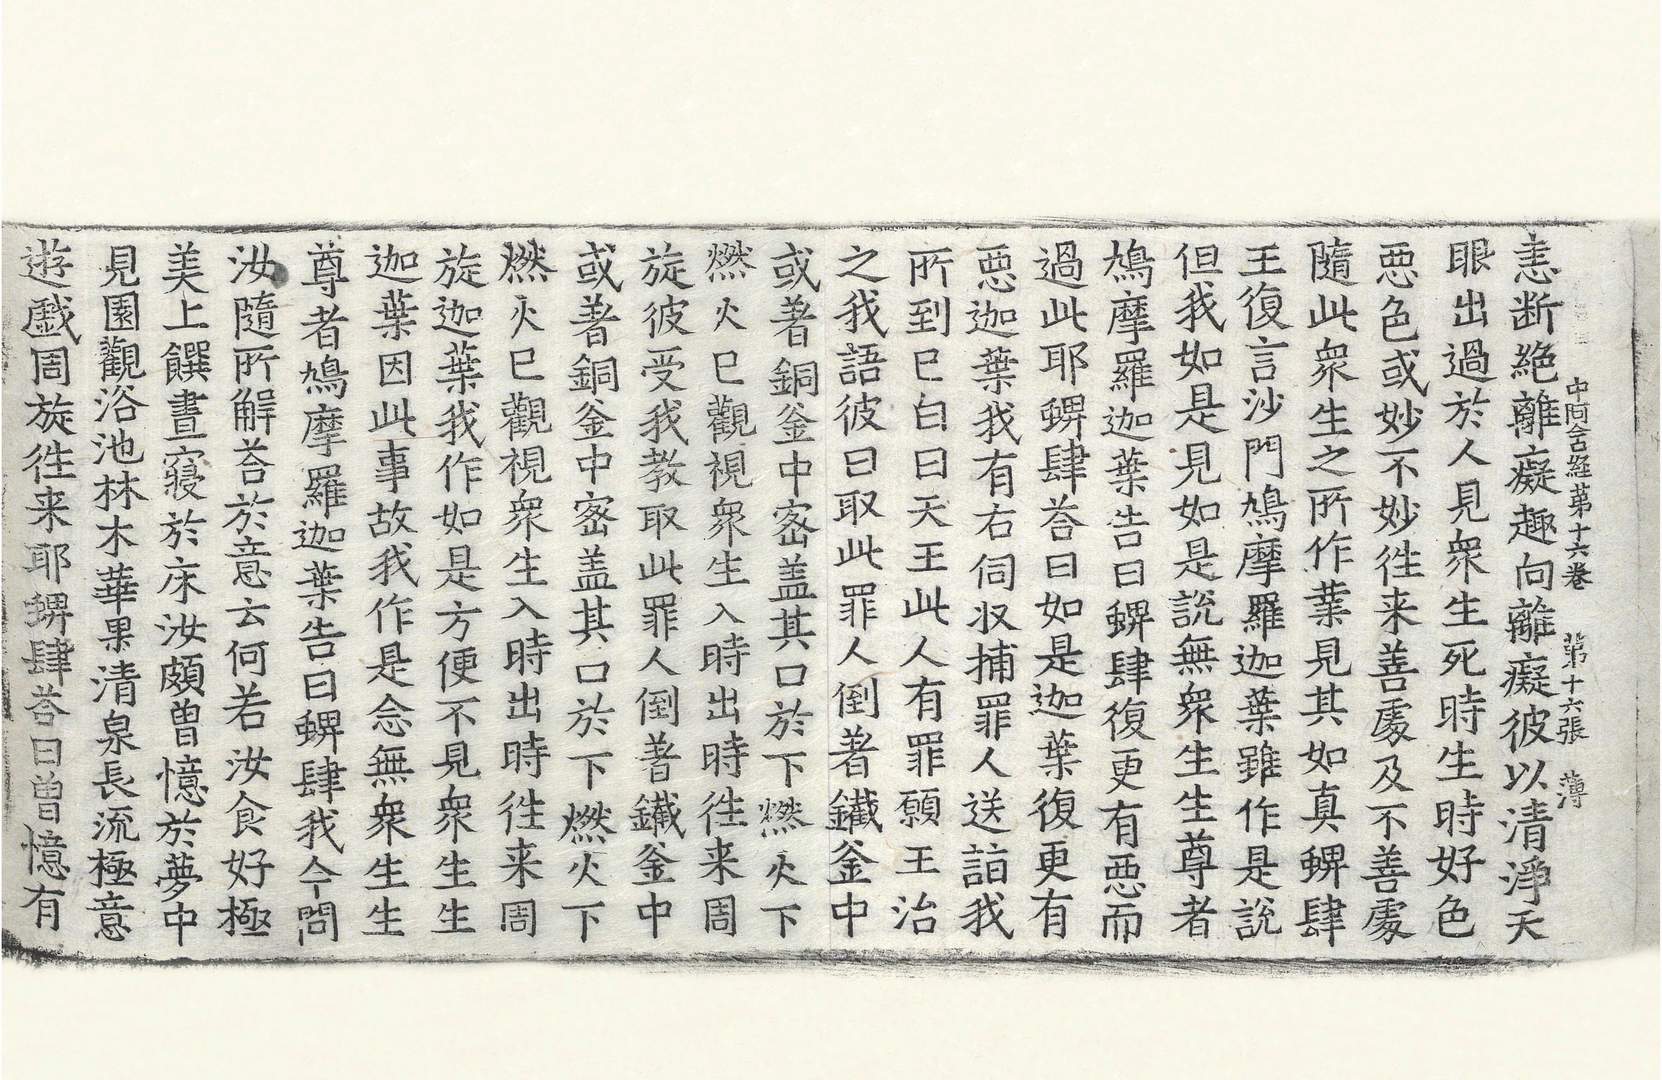 中阿含経第十六巻　第十六張　薄
恚断絶離癡趣向離癡彼以清淨天
眼出過於人見衆生死時生時好色
惡色或妙不妙徃来善處及不善處
隨此衆生之所作業見其如真蜱肆
王復言沙門鳩摩羅迦葉雖作是說
但我如是見如是說無衆生生尊者
鳩摩羅迦葉告曰蜱肆復更有惡而
過此耶蜱肆荅曰如是迦葉復更有
惡迦葉我有右伺収捕罪人送詣我
所到已白曰天王此人有罪願王治
之我語彼曰取此罪人倒著鐵釜中
或著銅釜中密盖其口於下燃火下
燃火已觀視衆生入時出時徃来周
旋彼受我教取此罪人倒著鐵釜中
或著銅釜中密盖其口於下燃火下
燃火已觀視衆生入時出時徃来周
旋迦葉我作如是方便不見衆生生
迦葉因此事故我作是念無衆生生
尊者鳩摩羅迦葉告曰蜱肆我今問
汝隨所解荅於意云何若汝食好極
美上饌晝寢於床汝頗曾憶於夢中
見園觀浴池林木華果清泉長流極意
遊戲周旋徃来耶蜱肆荅曰曽憶有